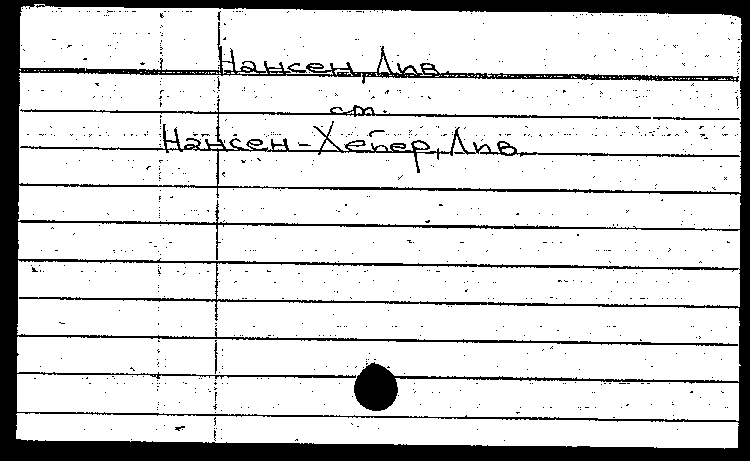 Нансен, Лив.
см.
Нансен-Хейер, Лив.